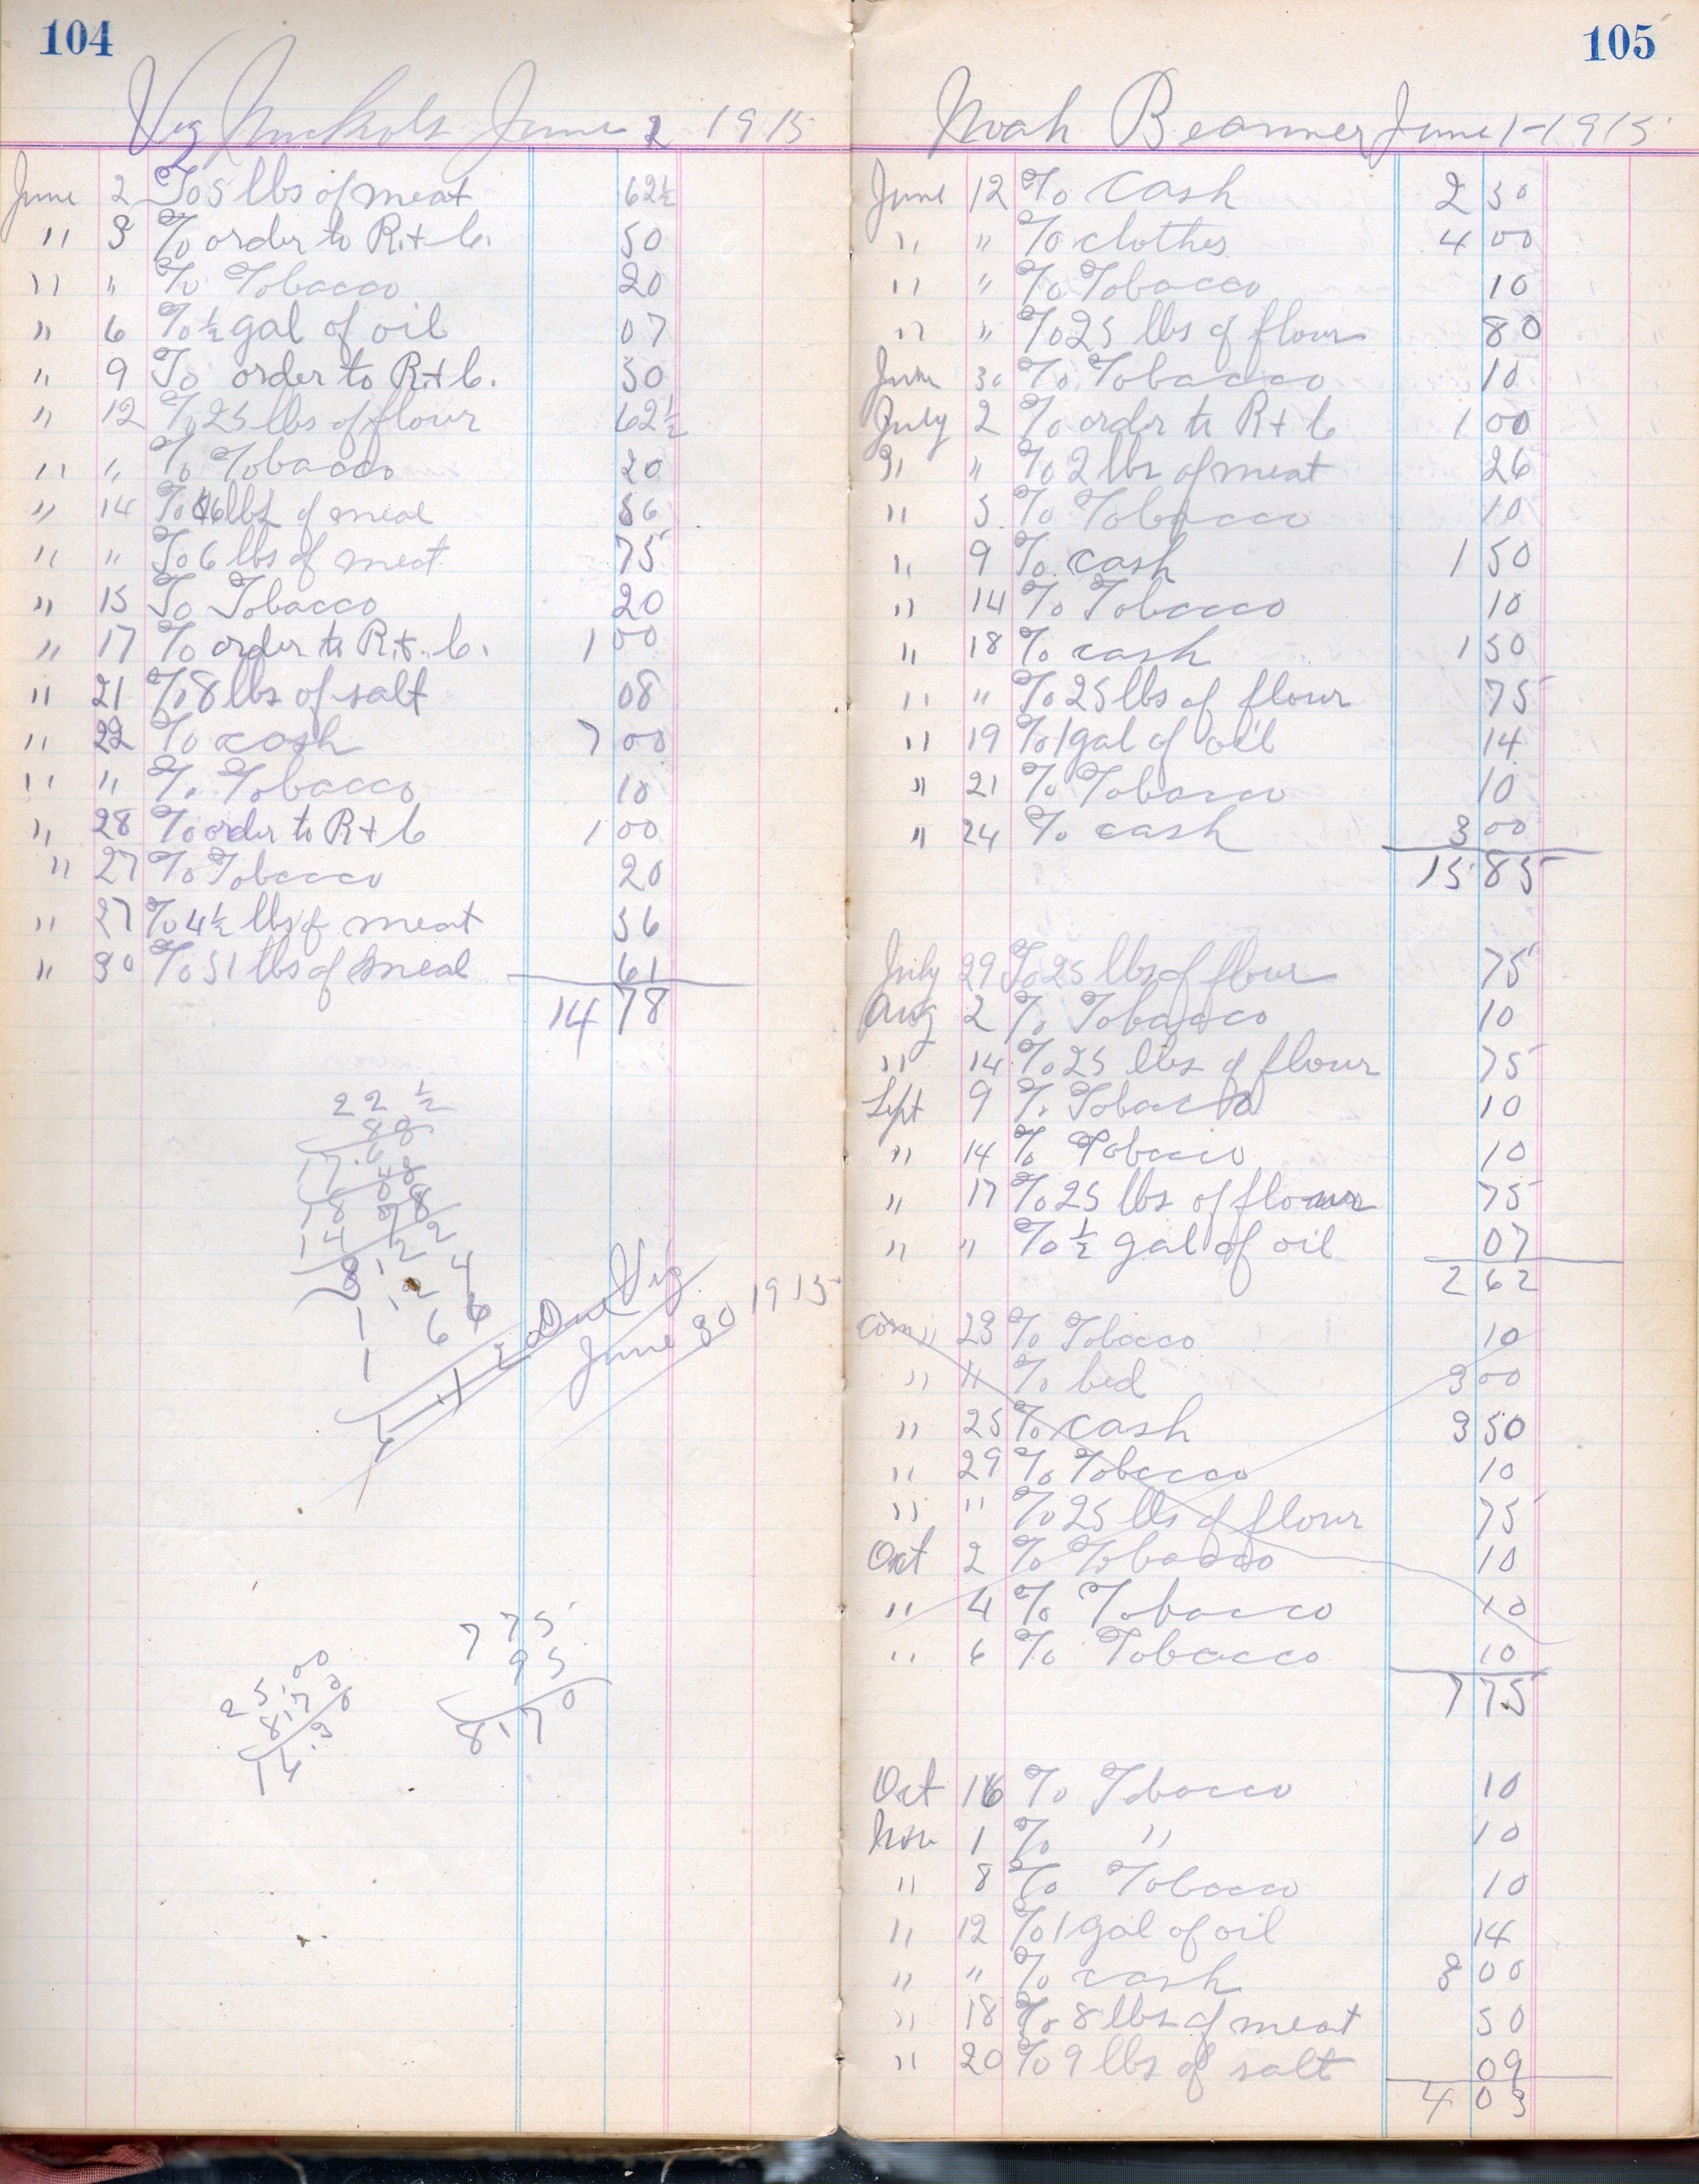 104
Vig Nuckols June 2 1915
June 2 To 5 lbs of meat 62½
" 3 To order to R. + C. 50
" " To Tobacco 20
" 6 To ½ gal of oil 07
" 9 To order to R. + C. 50
" 12 To 25 lbs of flour 62½
" " To Tobacco 20
" 14 To 16 lbs of meal 56
" " To 6 lbs of meat 75
" 15 To Tobacco 20
" 17 To order to R. + C. 1 00
" 21 To 8 lbs of salt 08
" 22 To cash 7 00
" " To Tobacco 10
" 28 To order to R + C 1 00
" 27 To Tobacco 20
" 27 To 4½ lbs of meat 56
" 30 To 51 lbs of meal 61
14 78
22 ½
88
17.6
48
18 08
14 78
Due Vig
June 30 1915
7 75
95
8.70
25.00
8.70
16.30
105
Noah Beamer June 1 - 1915
June 12 To cash 2 50
" " To clothes 4 00
" " To Tobacco 10
" " To 25 lbs of flour 80
June 30 To Tobacco 10
July 2 To order to R + C 1 00
" " To 2 lbs of meat 26
" 5 To Tobacco 10
" 9 To cash 1 50
" 14 To Tobacco 10
" 18 To cash 1 50
" " To 25 lbs of flour 75
" 19 To 1 gal of oil 14
" 21 To Tobacco 10
" 24 To cash 3 00
15 85
July 29 To 25 lbs of flour 75
Aug 2 To Tobacco 10
" 14 To 25 lbs of flour 75
Sept 9 To Tobacco 10
" 14 To Tobacco 10
" 17 To 25 lbs of flour 75
" " To ½ gal of oil 07
2 62
" 23 To Tobacco 10
" " To bed 3 00
" 25 To cash 3 50
" 29 To Tobacco 10
" " To 25 lbs of flour 75
Oct 2 To Tobacco 10
" 4 To Tobacco 10
" 6 To Tobacco 10
7 75
Oct 16 To Tobacco 10
Nov 1 To " 10
" 8 To Tobacco 10
" 12 To 1 gal of oil 14
" " To cash 3 00
" 18 To 8 lbs of meat 50
" 20 To 9 lbs of salt 09
4 03